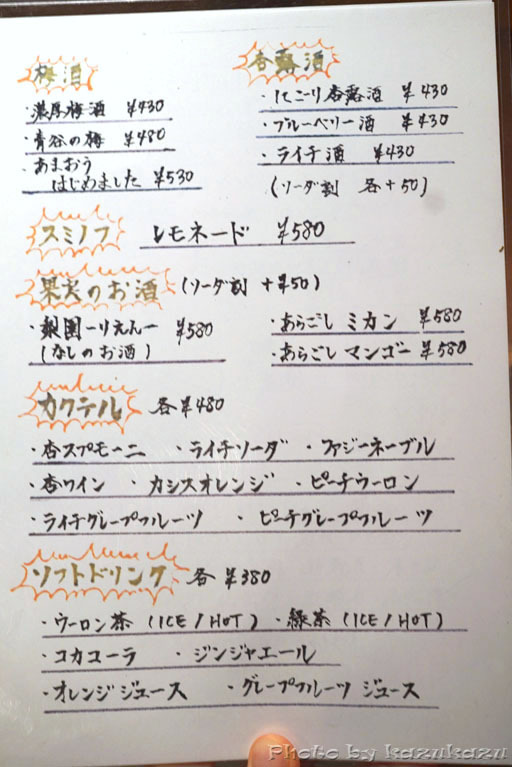 梅酒
・濃厚梅酒 ¥430
・青谷の梅 ¥480
・あまおう
はじめました ¥530
杏露酒
・にごり杏露酒 ¥430
・ブルーベリー酒 ¥430
・ライチ酒 ¥430
(ソーダ割 各+50)
スミノフ レモネード ¥580
果実のお酒 (ソーダ割 +¥50)
・梨園ーりえんー ¥580
(なしのお酒)
・あらごし ミカン ¥580
・あらごし マンゴー ¥580
カクテル 各¥480
・杏スプモーニ ・ライチソーダ ・ファジーネーブル
・杏ワイン ・カシスオレンジ ・ピーチウーロン
・ライチグレープフルーツ ・ピーチグレープフルーツ
ソフトドリンク 各¥380
・ウーロン茶 (ICE/HOT) ・緑茶 (ICE/HOT)
・コカコーラ ・ジンジャエール
・オレンジジュース ・グレープフルーツ ジュース
Photo by kazukazu